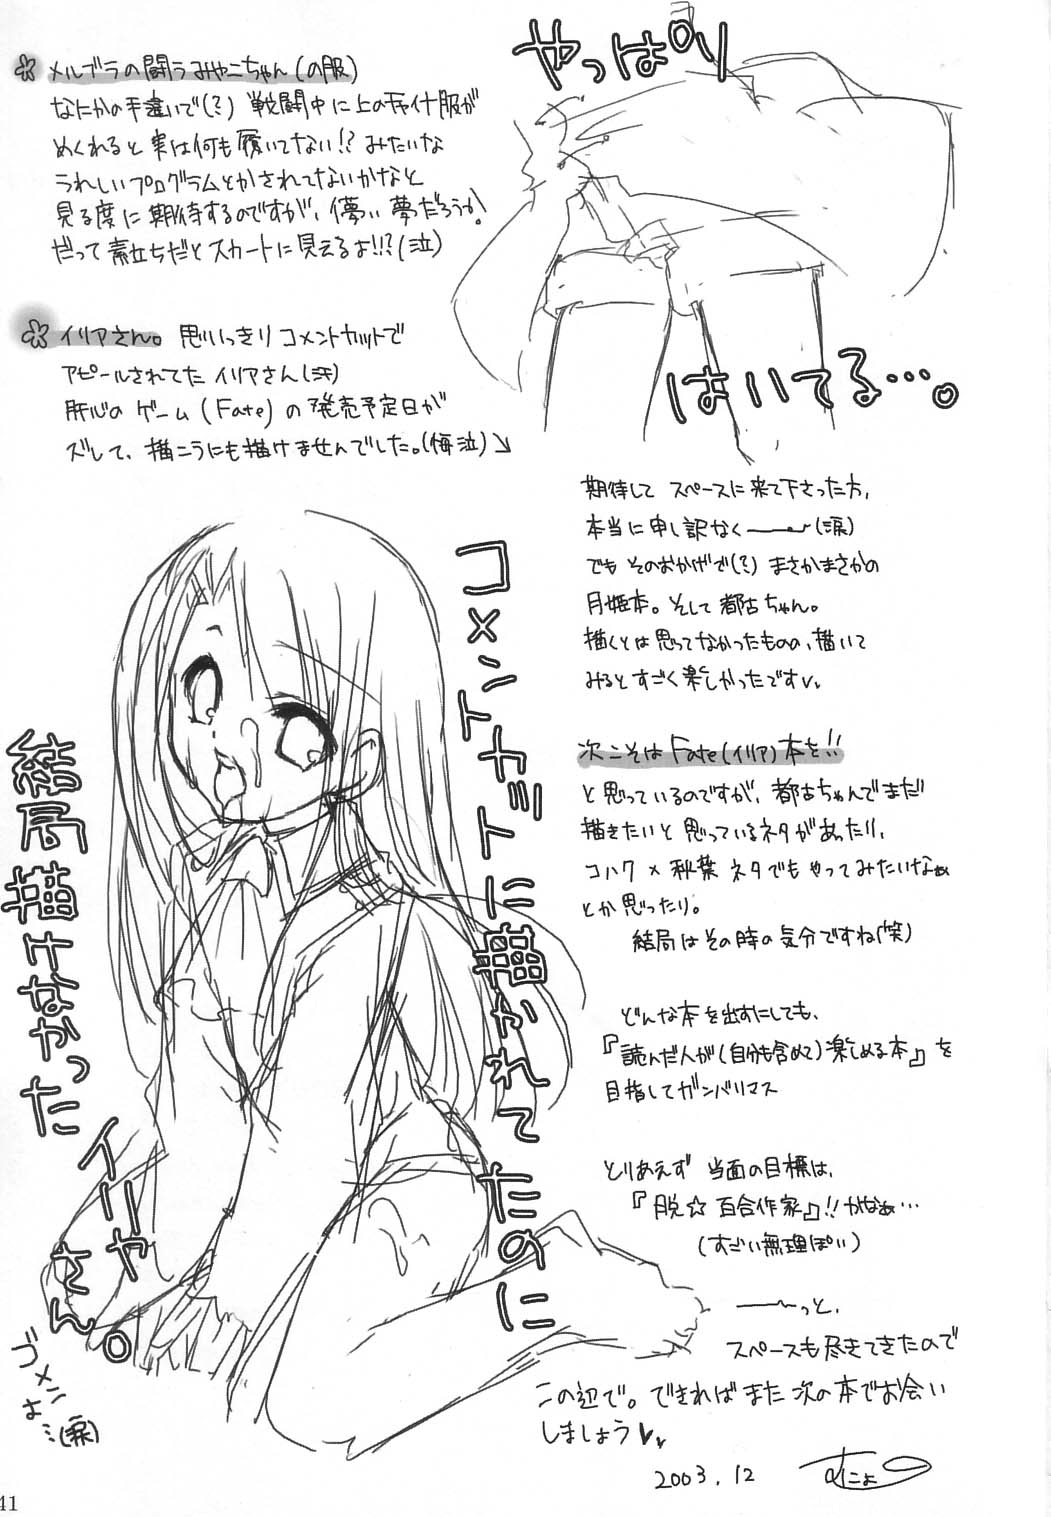 メルブラの闘うみやこちゃん(の服)
なにかの手違いで(?) 戦闘中に上のチャイナ服が
めくれると実は何も履いてない!? みたいな
うれしいプログラムとかされてないかなと
見る度に期待するのですが、儚い夢だろうか?
だって素立ちだとスカートに見えるよ!!?(泣)
やっぱり
はいてる…。
イリアさん。思いっきりコメントカットで
アピールされてたイリアさん(汗)
肝心のゲーム(Fate)の発売予定日が
ズレて、描こうにも描けませんでした。(悔泣)↘
期待してスペースに来て下さった方、
本当に申し訳なく〜(涙)
でもそのおかげで(?) まさかまさかの
月姫本。そして都古ちゃん。
描くとは思ってなかったものの、描いて
みるとすごく楽しかったです♥
次こそはFate(イリア)本を!!
と思っているのですが、都古ちゃんでまだ
描きたいと思っているネタがあったり、
コハク×秋葉ネタでもやってみたいなぁ
とか思ったり。
結局はその時の気分ですね(笑)
どんな本を出すにしても、
『読んだ人が(自分も含めて)楽しめる本』を
目指してガンバリマス
とりあえず 当面の目標は、
『脱☆百合作家』!!かなぁ…
(すごい無理ぽい)
〜っと、
スペースも尽きてきたので
この辺で。できればまた次の本でお会い
しましょう♥♥
2003.12
コメントカットに描かれてたのに
結局描けなかった
イリヤさん。
ゴメンよ…(涙)
41